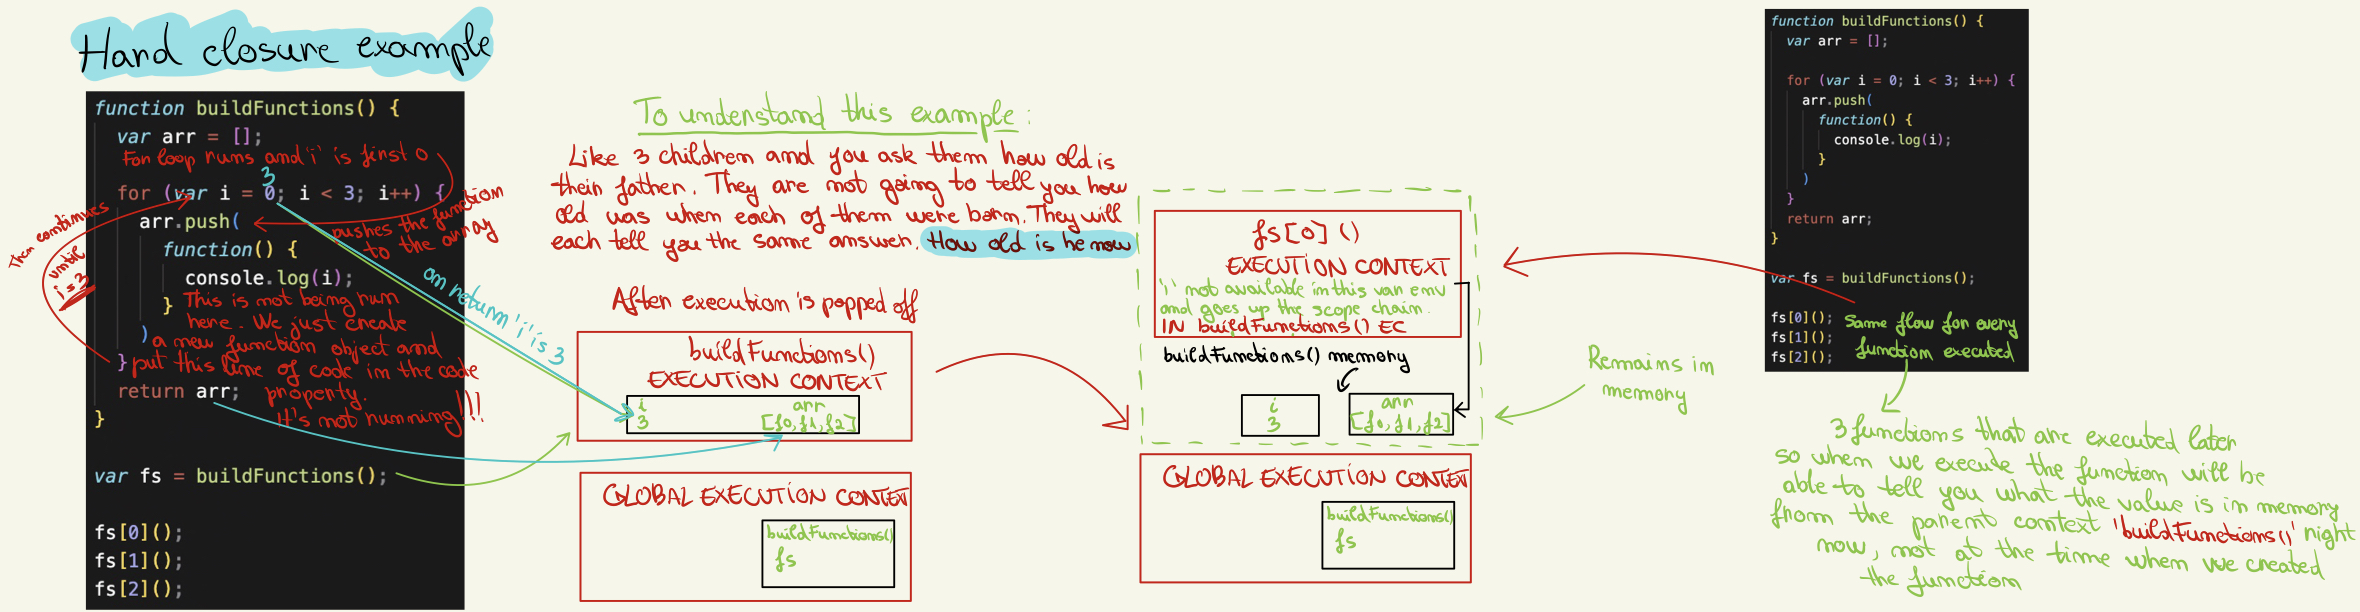 Hard closure example
function buildFunctions() {
var arr = [];
For loop runs and 'i' is first 0
3
for (var i = 0; i < 3; i++) {
arr.push(
pushes the function
to the array
function() {
console.log(i);
}
This is not being run
here. We just create
)
a new function object and
}
put this line of code in the code
return arr;
property.
It's not running!!!
}
Then continues
until
i is 3
var fs = buildFunctions();
fs[0]();
fs[1]();
fs[2]();
on return 'i' is 3
To understand this example:
Like 3 children and you ask them how old is
their father. They are not going to tell you how
old was when each of them were born. They will
each tell you the same answer. How old is he now
After execution is popped off
buildFunctions()
EXECUTION CONTEXT
i
3
arr
[f0,f1,f2]
GLOBAL EXECUTION CONTEXT
buildFunctions()
fs
fs[0]()
EXECUTION CONTEXT
'i' not available in this var env
and goes up the scope chain.
IN buildFunctions() EC
buildFunctions() memory
i
3
arr
[f0,f1,f2]
GLOBAL EXECUTION CONTEXT
buildFunctions()
fs
Remains in
memory
function buildFunctions() {
var arr = [];
for (var i = 0; i < 3; i++) {
arr.push(
function() {
console.log(i);
}
)
}
return arr;
}
var fs = buildFunctions();
fs[0]();
fs[1]();
fs[2]();
Same flow for every
function executed
3 functions that are executed later
so when we execute the function will be
able to tell you what the value is in memory
from the parent context 'buildFunctions()' right
now, not at the time when we created
the function